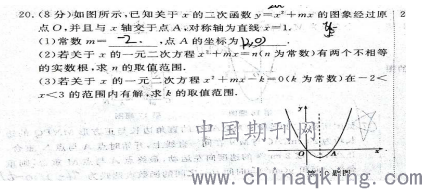 20.(8分)如图所示,已知关于x的二次函数y=x²+mx的图象经过原
点O,并且与x轴交于点A,对称轴为直线x=1.
(1)常数m=-2,点A的坐标为(2,0).
(2)若关于x的一元二次方程x²+mx=n(n为常数)有两个不相等
的实数根,求n的取值范围.
(3)若关于x的一元二次方程x²+mx-k=0(k为常数)在-2<
x<3的范围内有解,求k的取值范围.
中国期刊网
y
O
A
x
www.chinaqking.com
2